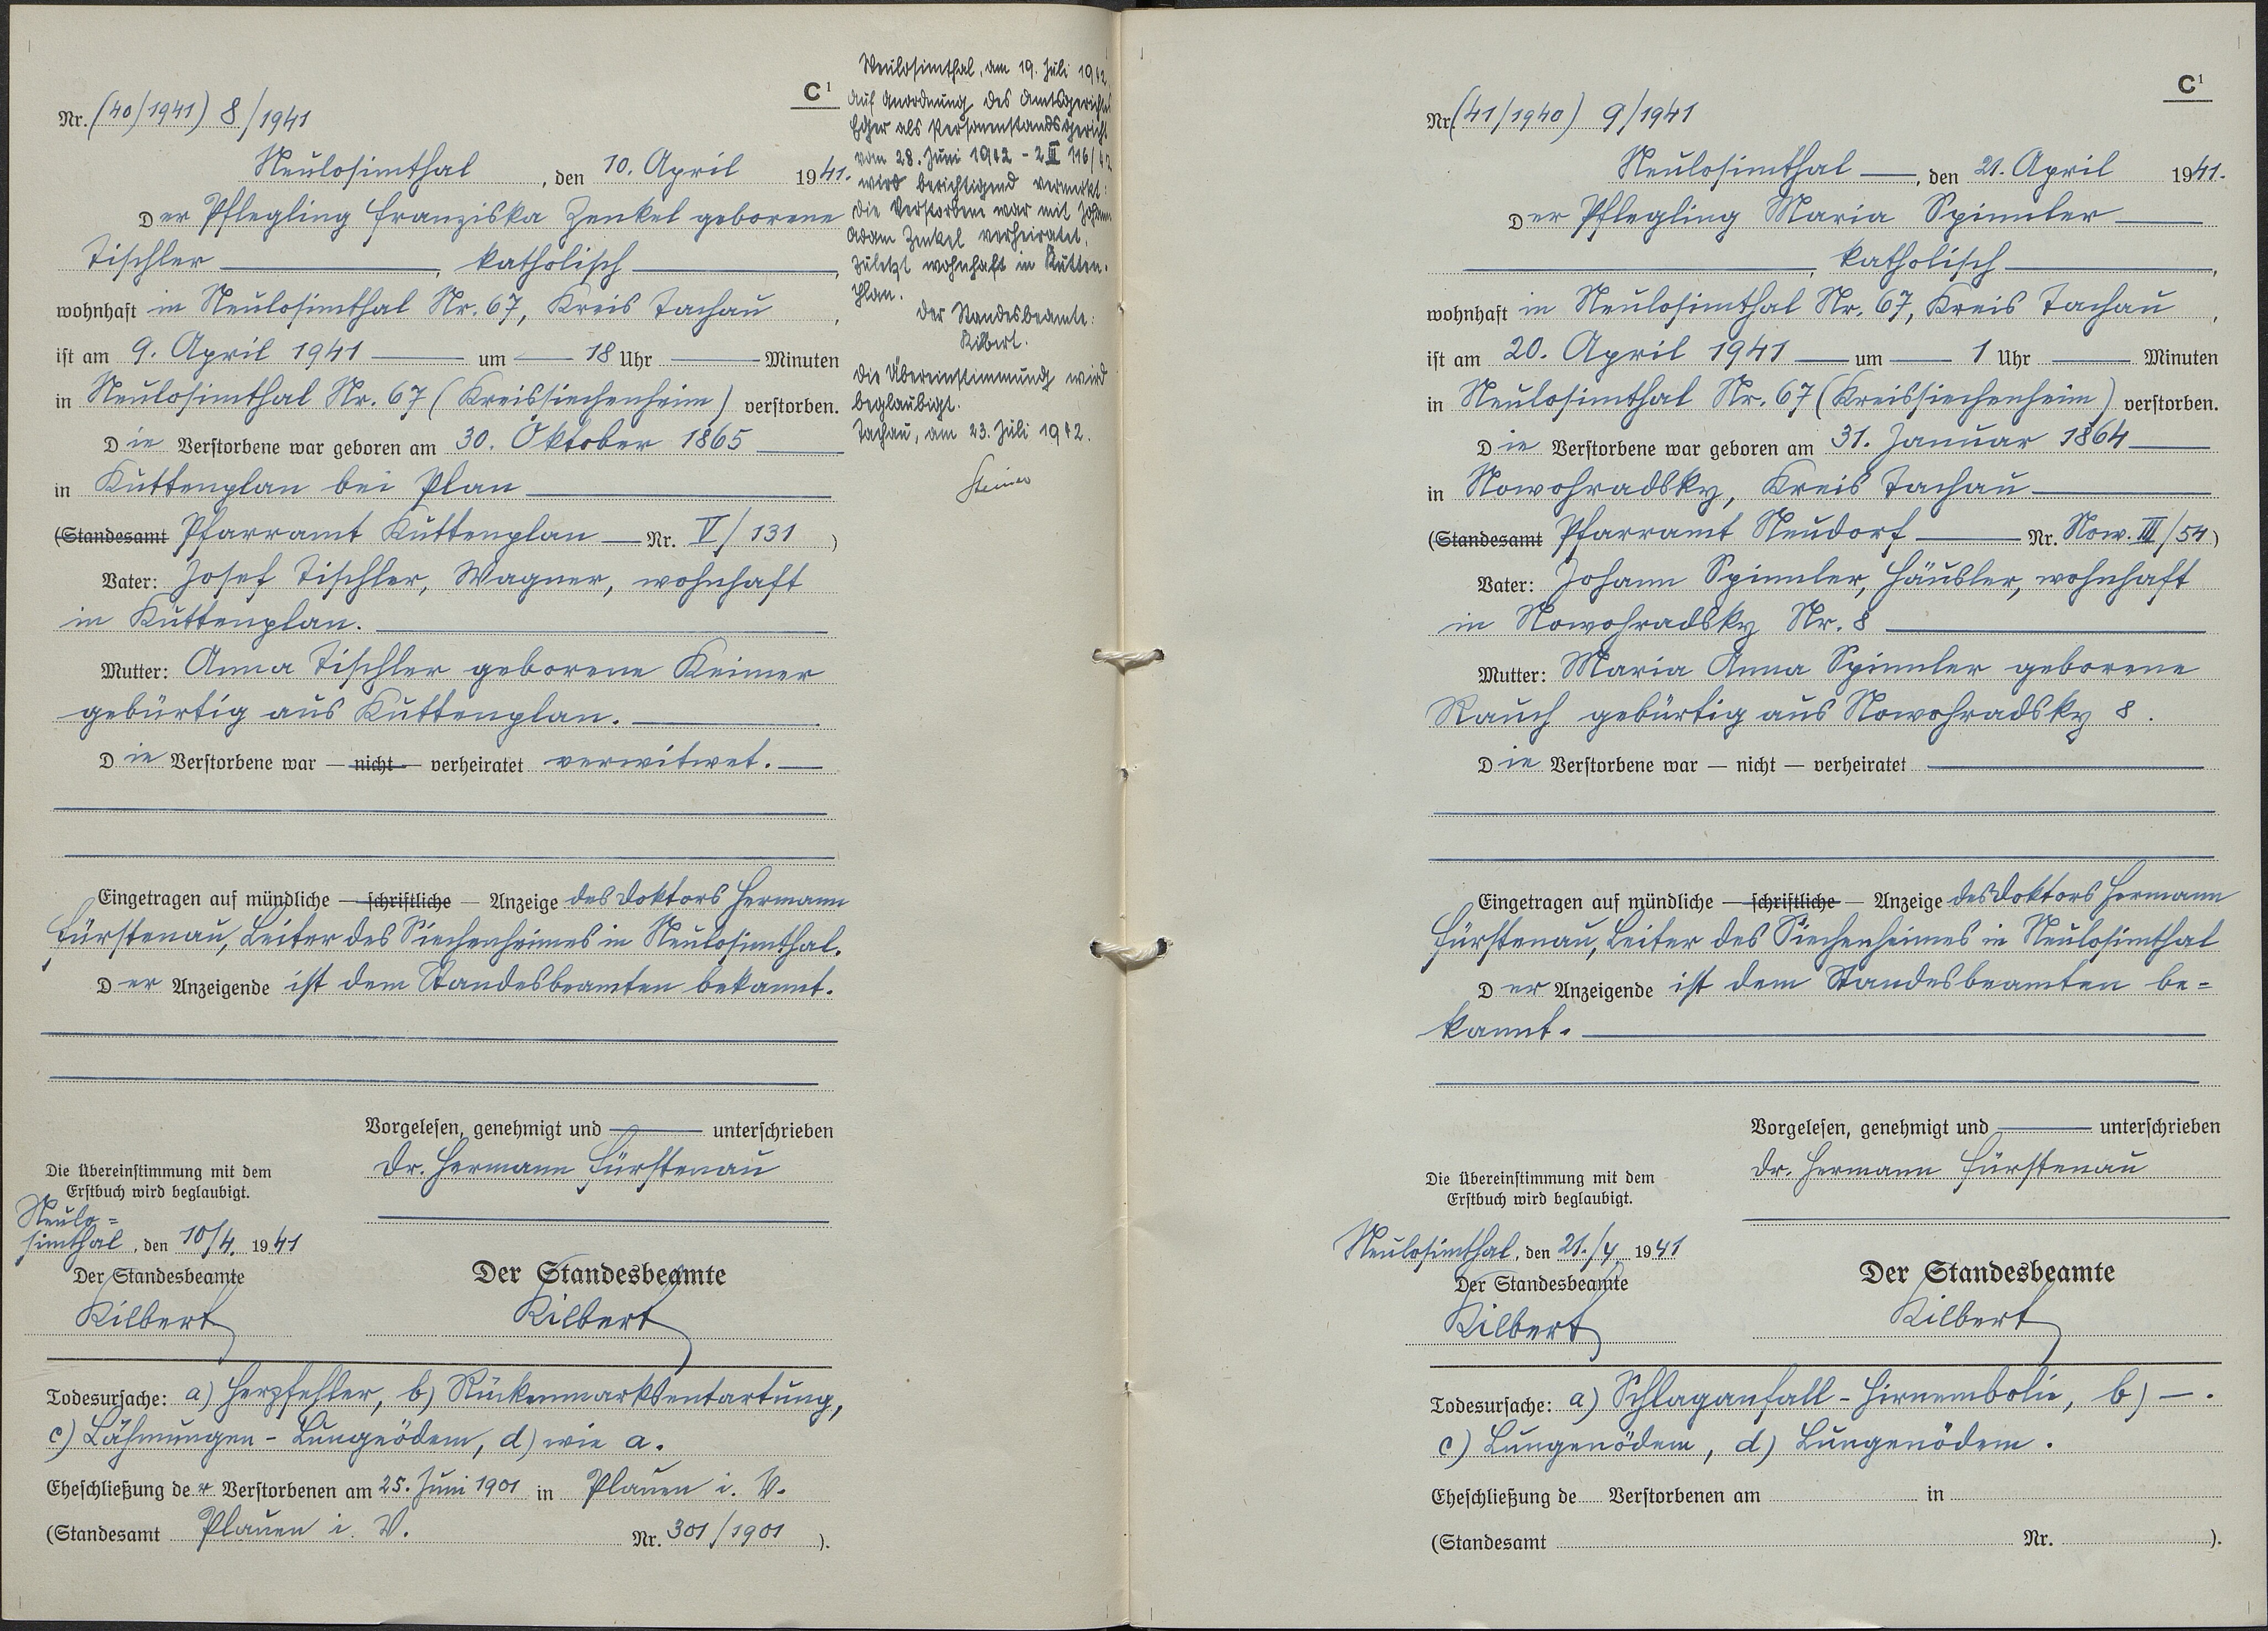 C¹
Nr. (40/1941) 8/1941
Neulosimthal, den 10. April 1941.
Der Pflegling Franziska Zenkel geborene
Tischler, katholisch,
wohnhaft in Neulosimthal Nr. 67, Kreis Tachau,
ist am 9. April 1941 um 18 Uhr Minuten
in Neulosimthal Nr. 67 (Kreissiechenheim) verstorben.
Die Verstorbene war geboren am 30. Oktober 1865
in Kuttenplan bei Plan
(Standesamt Pfarramt Kuttenplan Nr. V/131)
Vater: Josef Tischler, Wagner, wohnhaft
in Kuttenplan.
Mutter: Anna Tischler geborene Keimer
gebürtig aus Kuttenplan.
Die Verstorbene war — nicht — verheiratet verwitwet.
Eingetragen auf mündliche — schriftliche — Anzeige des Doktors Hermann
Fürstenau, Leiter des Siechenheimes in Neulosimthal.
Der Anzeigende ist dem Standesbeamten bekannt.
Vorgelesen, genehmigt und unterschrieben
Dr. Hermann Fürstenau
Die Übereinstimmung mit dem
Erstbuch wird beglaubigt.
Neulo=
simthal, den 10/4. 1941
Der Standesbeamte
Kilbert
Der Standesbeamte
Kilbert
Todesursache: a) Herzfehler, b) Rückenmarksentartung,
c) Lähmungen - Lungenödem, d) wie a.
Eheschließung der Verstorbenen am 25. Juni 1901 in Plauen i. V.
(Standesamt Plauen i. V. Nr. 301/1901).
Neulosimthal, am 19. Juli 1942.
Auf Anordnung des Amtsgerichtes
Eger als Personenstandsgericht
vom 28. Juni 1942 - 2 III 116/42
wird berichtigend vermerkt:
Die Verstorbene war mit Johann
Adam Zenkel verheiratet,
zuletzt wohnhaft in Kutten-
plan.
Der Standesbeamte:
Kilbert.
Die Übereinstimmung wird
beglaubigt.
Tachau, am 23. Juli 1942.
Steiner
C¹
Nr. (41/1940) 9/1941
Neulosimthal, den 21. April 1941.
Der Pflegling Maria Spinnler
, katholisch,
wohnhaft in Neulosimthal Nr. 67, Kreis Tachau,
ist am 20. April 1941 um 1 Uhr Minuten
in Neulosimthal Nr. 67 (Kreissiechenheim) verstorben.
Die Verstorbene war geboren am 31. Januar 1864
in Nowohradsky, Kreis Tachau
(Standesamt Pfarramt Neudorf Nr. Now. III/54)
Vater: Johann Spinnler, Häusler, wohnhaft
in Nowohradsky Nr. 8
Mutter: Maria Anna Spinnler geborene
Rauch gebürtig aus Nowohradsky 8.
Die Verstorbene war — nicht — verheiratet
Eingetragen auf mündliche — schriftliche — Anzeige des Doktors Hermann
Fürstenau, Leiter des Siechenheimes in Neulosimthal
Der Anzeigende ist dem Standesbeamten be=
kannt.
Vorgelesen, genehmigt und unterschrieben
Dr. Hermann Fürstenau
Die Übereinstimmung mit dem
Erstbuch wird beglaubigt.
Neulosimthal, den 21./4 1941
Der Standesbeamte
Kilbert
Der Standesbeamte
Kilbert
Todesursache: a) Schlaganfall - Hirnembolie, b) — .
c) Lungenödem, d) Lungenödem.
Eheschließung de Verstorbenen am in
(Standesamt Nr. ).